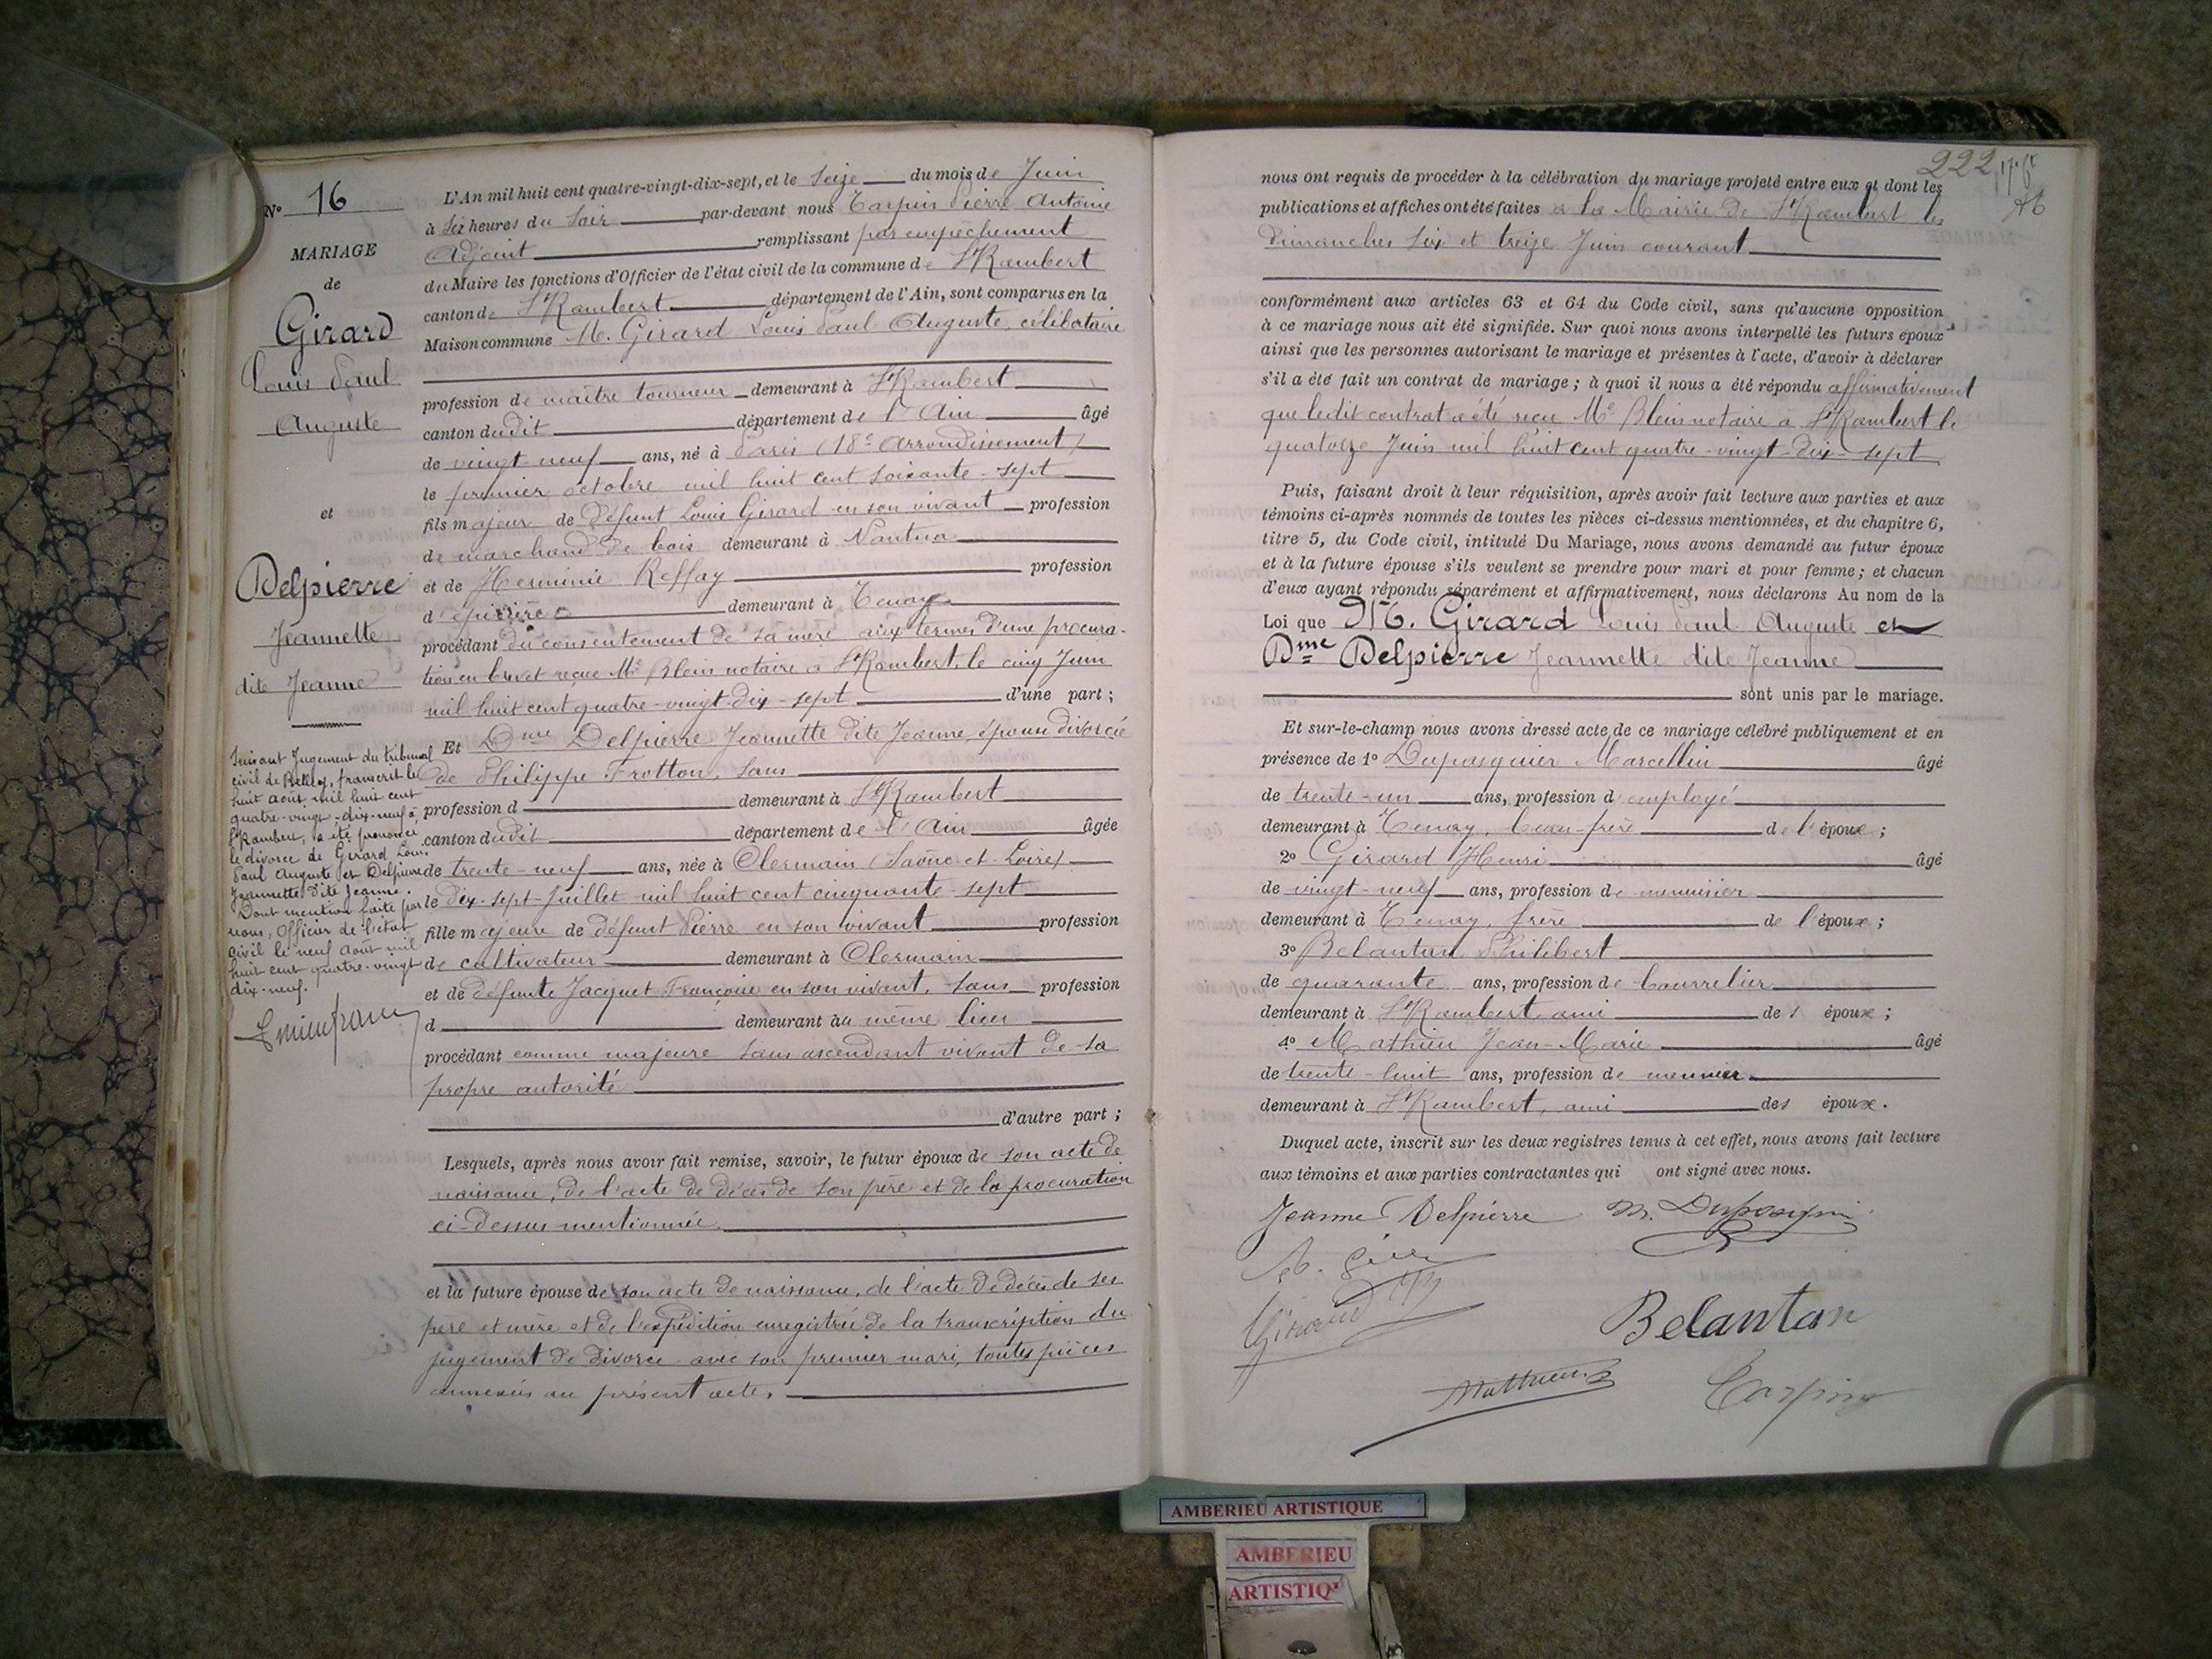 N° 16
MARIAGE
de
Girard
Louis Paul
Auguste
et
Delpierre
Jeannette
dite Jeanne
Suivant Jugement du tribunal
civil de Belley, transcrit le
huit août mil huit cent
quatre-vingt-dix-neuf à
St Rambert, a été prononcé
le divorce de Girard Louis
Paul Auguste et Delpierre
Jeannette dite Jeanne.
Dont mention faite par
nous, Officier de l'état
civil le neuf août mil
huit cent quatre-vingt
dix-neuf.
L'An mil huit cent quatre-vingt-dix-sept, et le Seize du mois de Juin
à Six heures du Soir par-devant nous Tarpin Pierre Antoine
Adjoint remplissant par empêchement
du Maire les fonctions d'Officier de l'état civil de la commune de St Rambert
canton de St Rambert département de l'Ain, sont comparus en la
Maison commune M. Girard Louis Paul Auguste, célibataire
profession de maître tourneur demeurant à St Rambert
canton dudit département de l'Ain âgé
de vingt-neuf ans, né à Paris (18e Arrondissement)
le premier octobre mil huit cent soixante-sept
fils majeur de défunt Louis Girard en son vivant profession
de marchand de bois demeurant à Nantua
et de Herminie Reffay profession
d'épicière demeurant à Tenay
procédant du consentement de sa mère aux termes d'une procura-
tion en brevet reçue Me Blein notaire à St Rambert, le cinq Juin
mil huit cent quatre-vingt-dix-sept d'une part ;
Et Dme Delpierre Jeannette dite Jeanne, épouse divorcée
de Philippe Frotton, Sans
profession d demeurant à St Rambert
canton dudit département de l'Ain âgée
de trente-neuf ans, née à Clermain (Saône-et-Loire)
le dix-sept Juillet mil huit cent cinquante-sept
fille majeure de défunt Pierre en son vivant profession
de cultivateur demeurant à Clermain
et de défunte Jacquet Françoise en son vivant, sans profession
d demeurant au même lieu
procédant comme majeure sans ascendant vivant de sa
propre autorité
d'autre part ;
Lesquels, après nous avoir fait remise, savoir, le futur époux de son acte de
naissance, de l'acte de décès de son père et de la procuration
ci-dessus mentionnée
et la future épouse de son acte de naissance, de l'acte de décès de ses
père et mère et de l'expédition enregistrée de la transcription du
jugement de divorce avec son premier mari, toutes pièces
annexées au présent acte.
222
nous ont requis de procéder à la célébration du mariage projeté entre eux et dont les
publications et affiches ont été faites à la Mairie de St Rambert les
dimanches six et treize Juin courant
conformément aux articles 63 et 64 du Code civil, sans qu'aucune opposition
à ce mariage nous ait été signifiée. Sur quoi nous avons interpellé les futurs époux
ainsi que les personnes autorisant le mariage et présentes à l'acte, d'avoir à déclarer
s'il a été fait un contrat de mariage ; à quoi il nous a été répondu affirmativement
que ledit contrat a été reçu Me Blein notaire à St Rambert le
quatorze Juin mil huit cent quatre-vingt-dix-sept
Puis, faisant droit à leur réquisition, après avoir fait lecture aux parties et aux
témoins ci-après nommés de toutes les pièces ci-dessus mentionnées, et du chapitre 6,
titre 5, du Code civil, intitulé Du Mariage, nous avons demandé au futur époux
et à la future épouse s'ils veulent se prendre pour mari et pour femme ; et chacun
d'eux ayant répondu séparément et affirmativement, nous déclarons Au nom de la
Loi que M. Girard Louis Paul Auguste et
Dme Delpierre Jeannette dite Jeanne
sont unis par le mariage.
Et sur-le-champ nous avons dressé acte de ce mariage célébré publiquement et en
présence de 1° Dupasquier Marcellin âgé
de trente-un ans, profession d'employé
demeurant à Tenay, beau-frère de l'époux ;
2° Girard Henri âgé
de vingt-neuf ans, profession de menuisier
demeurant à Tenay, frère de l'époux ;
3° Belantan Philibert
de quarante ans, profession de bourrelier
demeurant à St Rambert, ami des époux ;
4° Mathieu Jean-Marie âgé
de trente-huit ans, profession de meunier
demeurant à St Rambert, ami des époux.
Duquel acte, inscrit sur les deux registres tenus à cet effet, nous avons fait lecture
aux témoins et aux parties contractantes qui ont signé avec nous.
Jeanne Delpierre M. Dupasquier
Girard
Belantan
Mathieu Tarpin
AMBERIEU ARTISTIQUE
AMBERIEU
ARTISTIQ